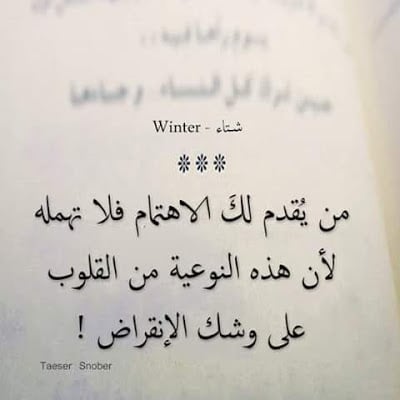 حين ترى كل النساء وجهها
شتاء - Winter
***
من يُقدم لكَ الاهتمام فلا تهمله
لأن هذه النوعية من القلوب
على وشك الإنقراض !
Taeser Snober